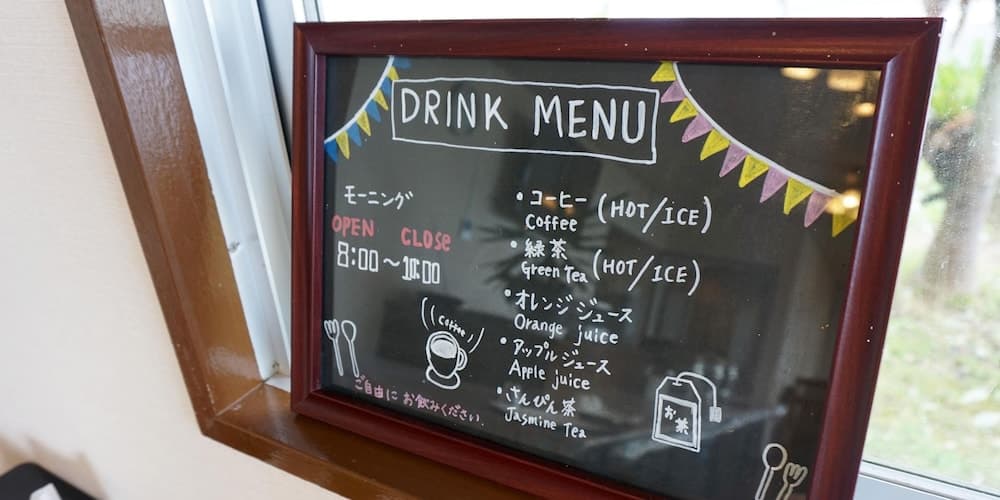 DRINK MENU
モーニング
OPEN CLOSE
8:00～10:00
Coffee
ご自由に お飲みください.
・コーヒー (HOT/ICE)
Coffee
・緑茶 (HOT/ICE)
Green Tea
・オレンジジュース
Orange juice
・アップルジュース
Apple juice
・さんぴん茶
Jasmine Tea
お茶